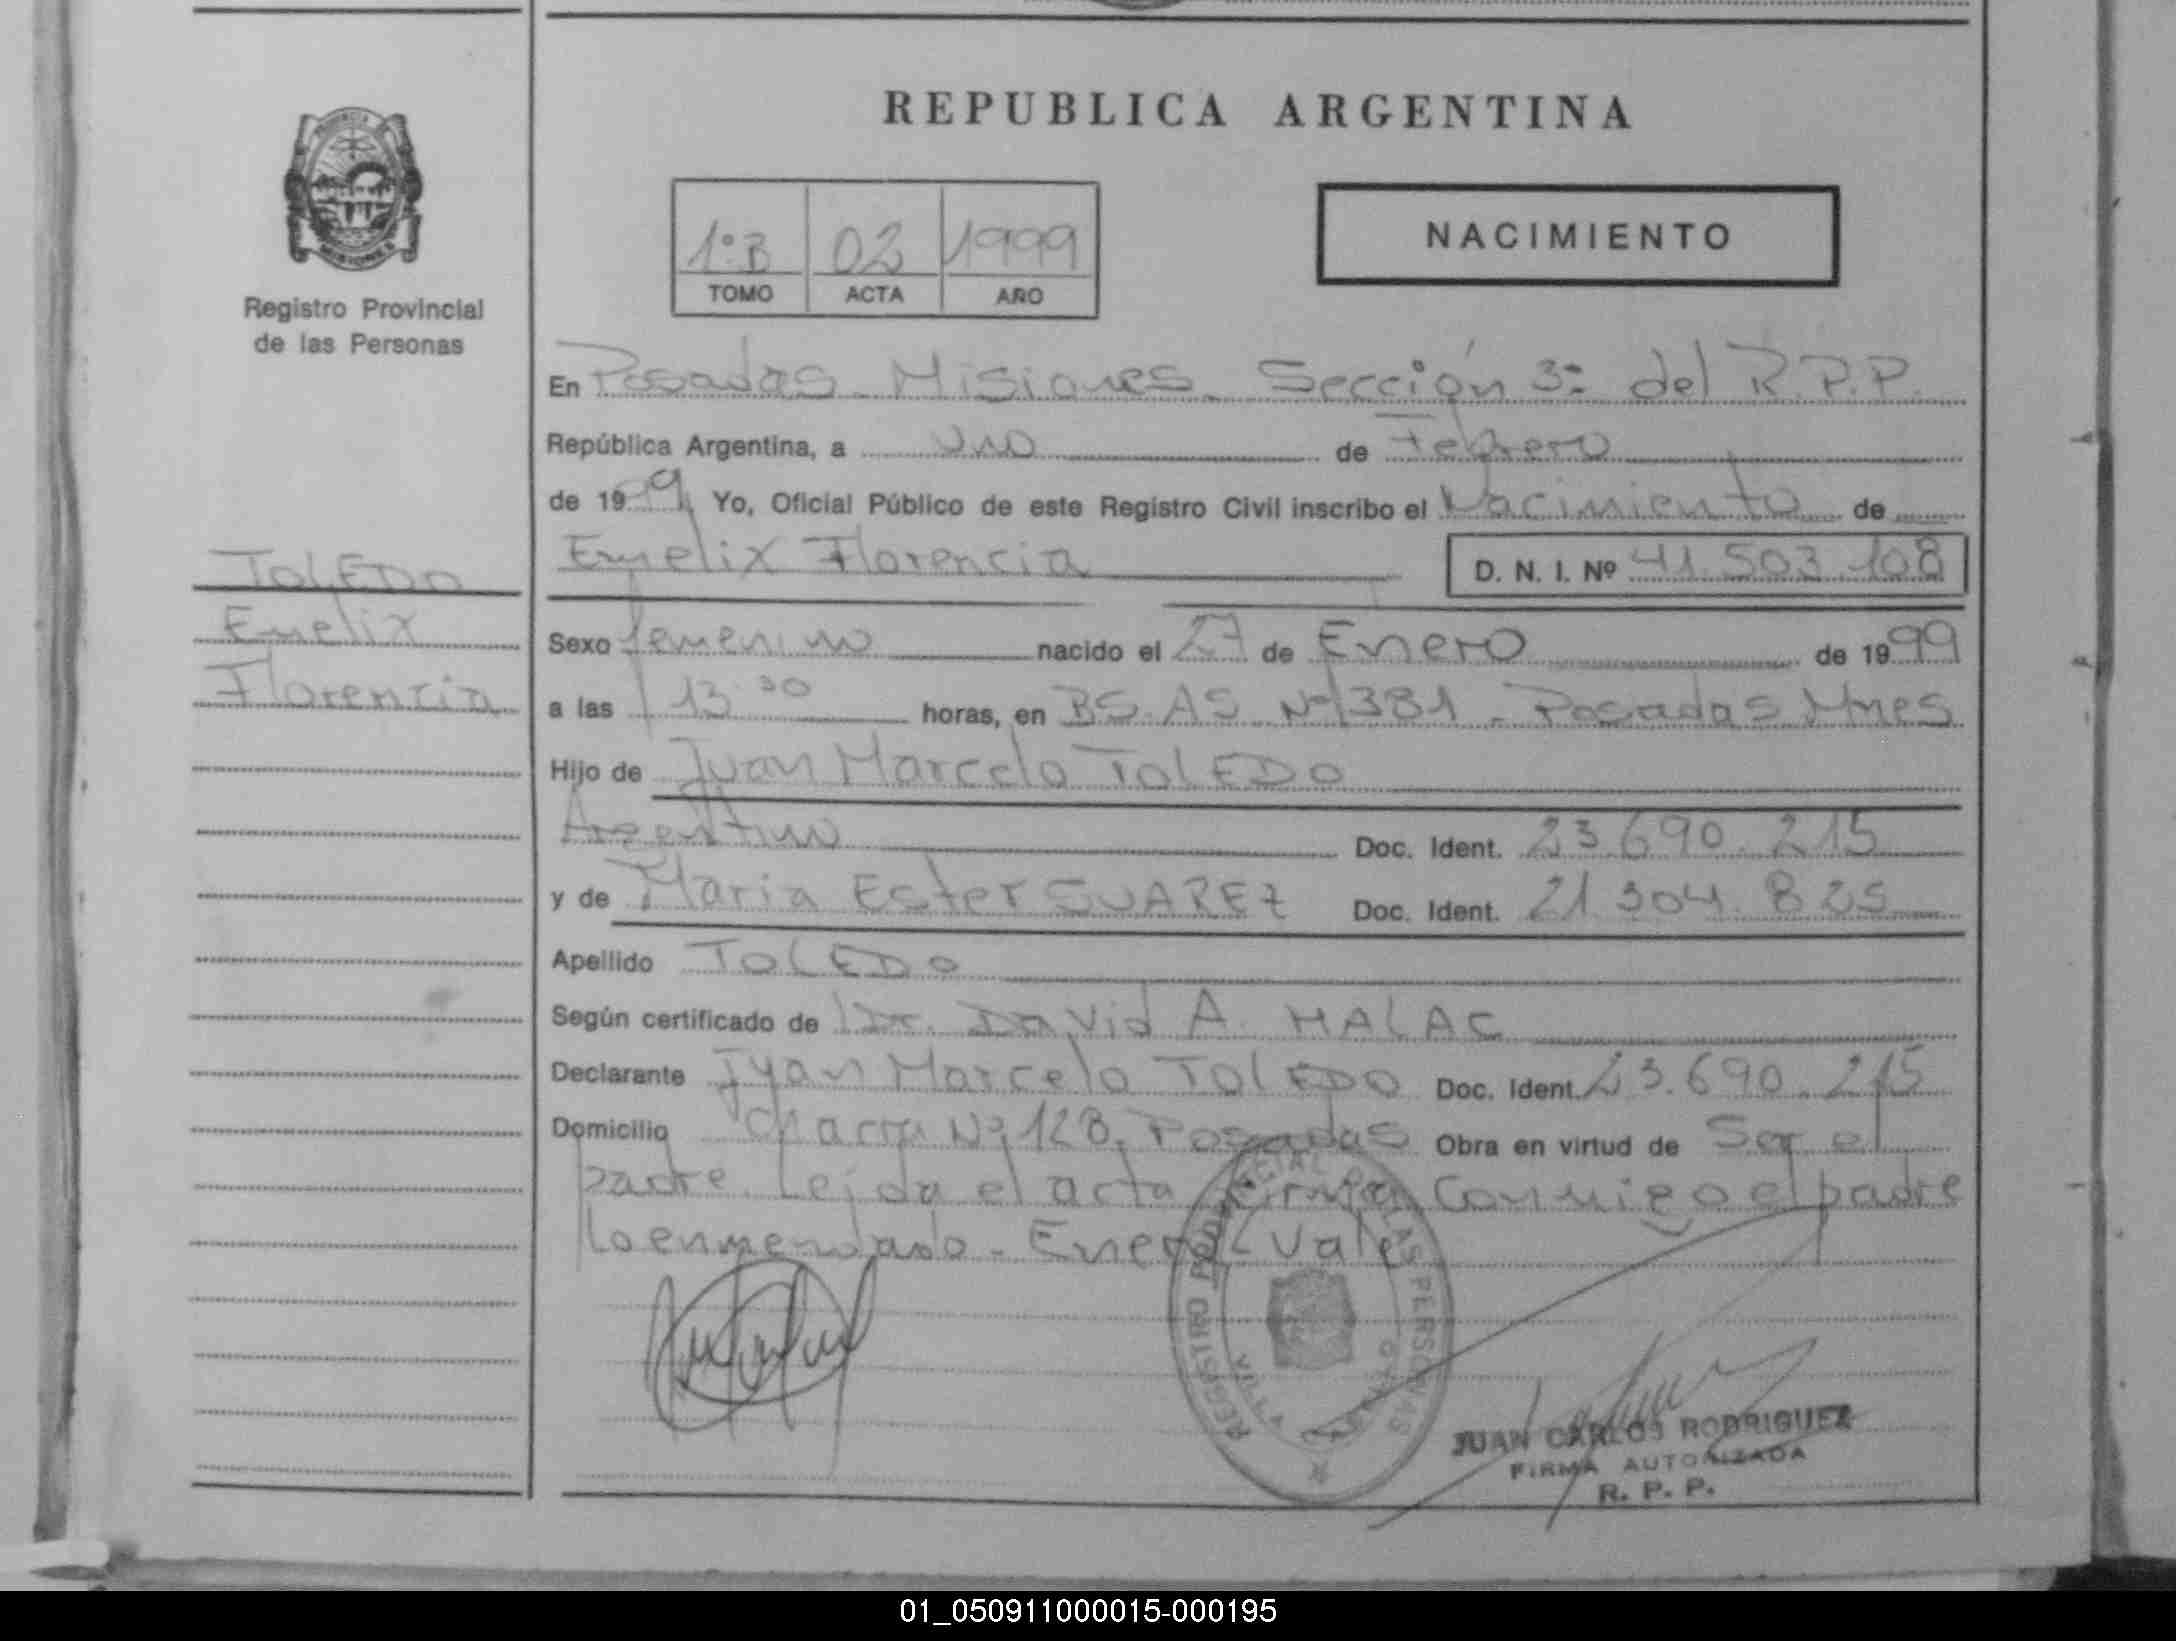 REPUBLICA ARGENTINA
1º B 02 1999
TOMO ACTA AÑO
NACIMIENTO
Registro Provincial
de las Personas
En Posadas - Misiones - Sección 3ª del R.P.P.
República Argentina, a uno de Febrero
de 1999 Yo, Oficial Público de este Registro Civil inscribo el Nacimiento de
Emelix Florencia D. N. I. Nº 41.503.108
TOLEDO
Emelix
Florencia
Sexo femenino nacido el 27 de Enero de 1999
a las 13.30 horas, en BS.AS Nº 1381 - Posadas Mnes
Hijo de Juan Marcelo TOLEDO
Argentino Doc. Ident. 23.690.215
y de Maria Ester SUAREZ Doc. Ident. 21.304.825
Apellido TOLEDO
Según certificado de Dr. David A. MALAC
Declarante Juan Marcelo TOLEDO Doc. Ident. 23.690.215
Domicilio Chacra Nº 128. Posadas Obra en virtud de Ser el
padre. Leida el acta firma Conmigo el padre
lo enmendado - Enero - Vale
REGISTRO PROVINCIAL DE LAS PERSONAS
JUAN CARLOS RODRIGUEZ
FIRMA AUTORIZADA
R. P. P.
01_050911000015-000195